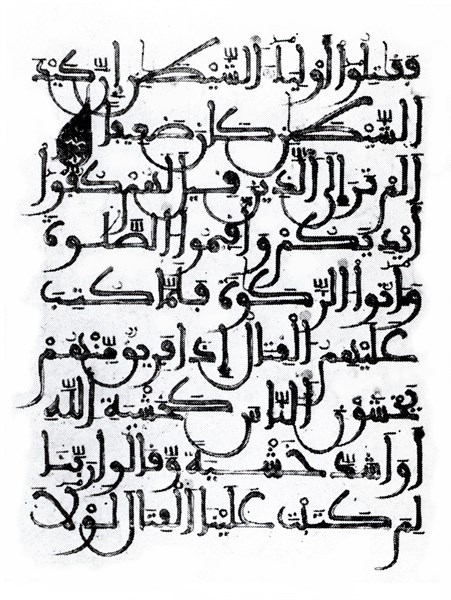 فَقَٰتِلُوٓا۟ أَوْلِيَآءَ الشَّيْطَٰنِ إِنَّ كَيْدَ
الشَّيْطَٰنِ كَانَ ضَعِيفًا
أَلَمْ تَرَ إِلَى الَّذِينَ قِيلَ لَهُمْ كُفُّوٓا۟
أَيْدِيَكُمْ وَأَقِيمُوا۟ الصَّلَوٰةَ
وَءَاتُوا۟ الزَّكَوٰةَ فَلَمَّا كُتِبَ
عَلَيْهِمُ الْقِتَالُ إِذَا فَرِيقٌ مِنْهُمْ
يَخْشَوْنَ النَّاسَ كَخَشْيَةِ اللَّهِ
أَوْ أَشَدَّ خَشْيَةً وَقَالُوا۟ رَبَّنَا
لِمَ كَتَبْتَ عَلَيْنَا الْقِتَالَ لَوْلَآ